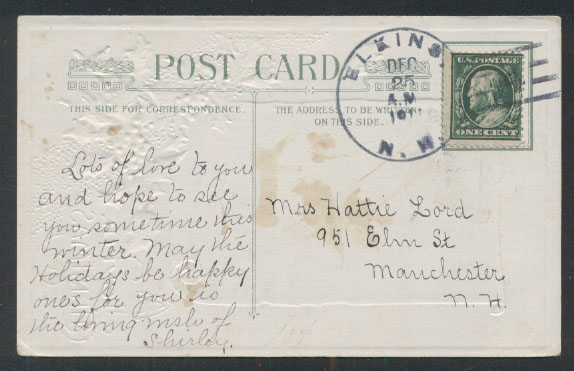 POST CARD
THIS SIDE FOR CORRESPONDENCE.
THE ADDRESS TO BE WRITTEN
ON THIS SIDE.
ELKINS,
DEC
25
A.M
1911
N.H.
U.S. POSTAGE
ONE CENT
Lots of love to you
and hope to see
you sometime this
winter. May the
Holidays be happy
ones for you is
the loving wish of
Shirley.
Mrs Hattie Lord
951 Elm St
Manchester
N.H.